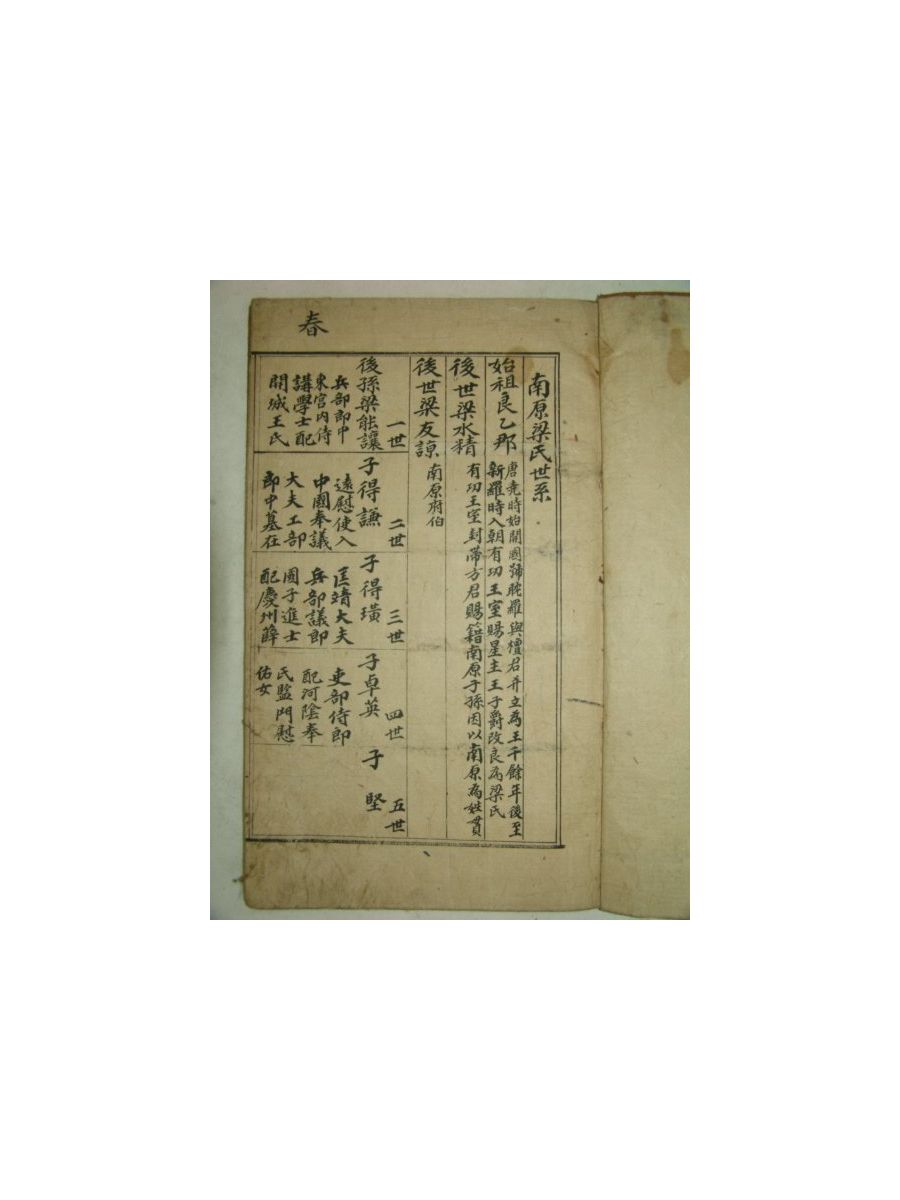 春
南原梁氏世系
始祖良乙那
唐堯時始開國號耽羅與檀君并立為王千餘年後至
新羅時入朝有功王室賜星主王子爵改良為梁氏
後世梁水精
有功王室封帶方君賜籍南原子孫因以南原為姓貫
後世梁友諒
南原府伯
一世
後孫梁能讓
兵部郎中
東宮內侍
講學士配
開城王氏
二世
子得謙
遠慰使入
中國奉議
大夫工部
郎中墓在
三世
子得璜
匡靖大夫
兵部議郎
國子進士
配慶州薛
四世
子卓英
吏部侍郎
配河陰奉
氏監門慰
佑女
五世
子 堅